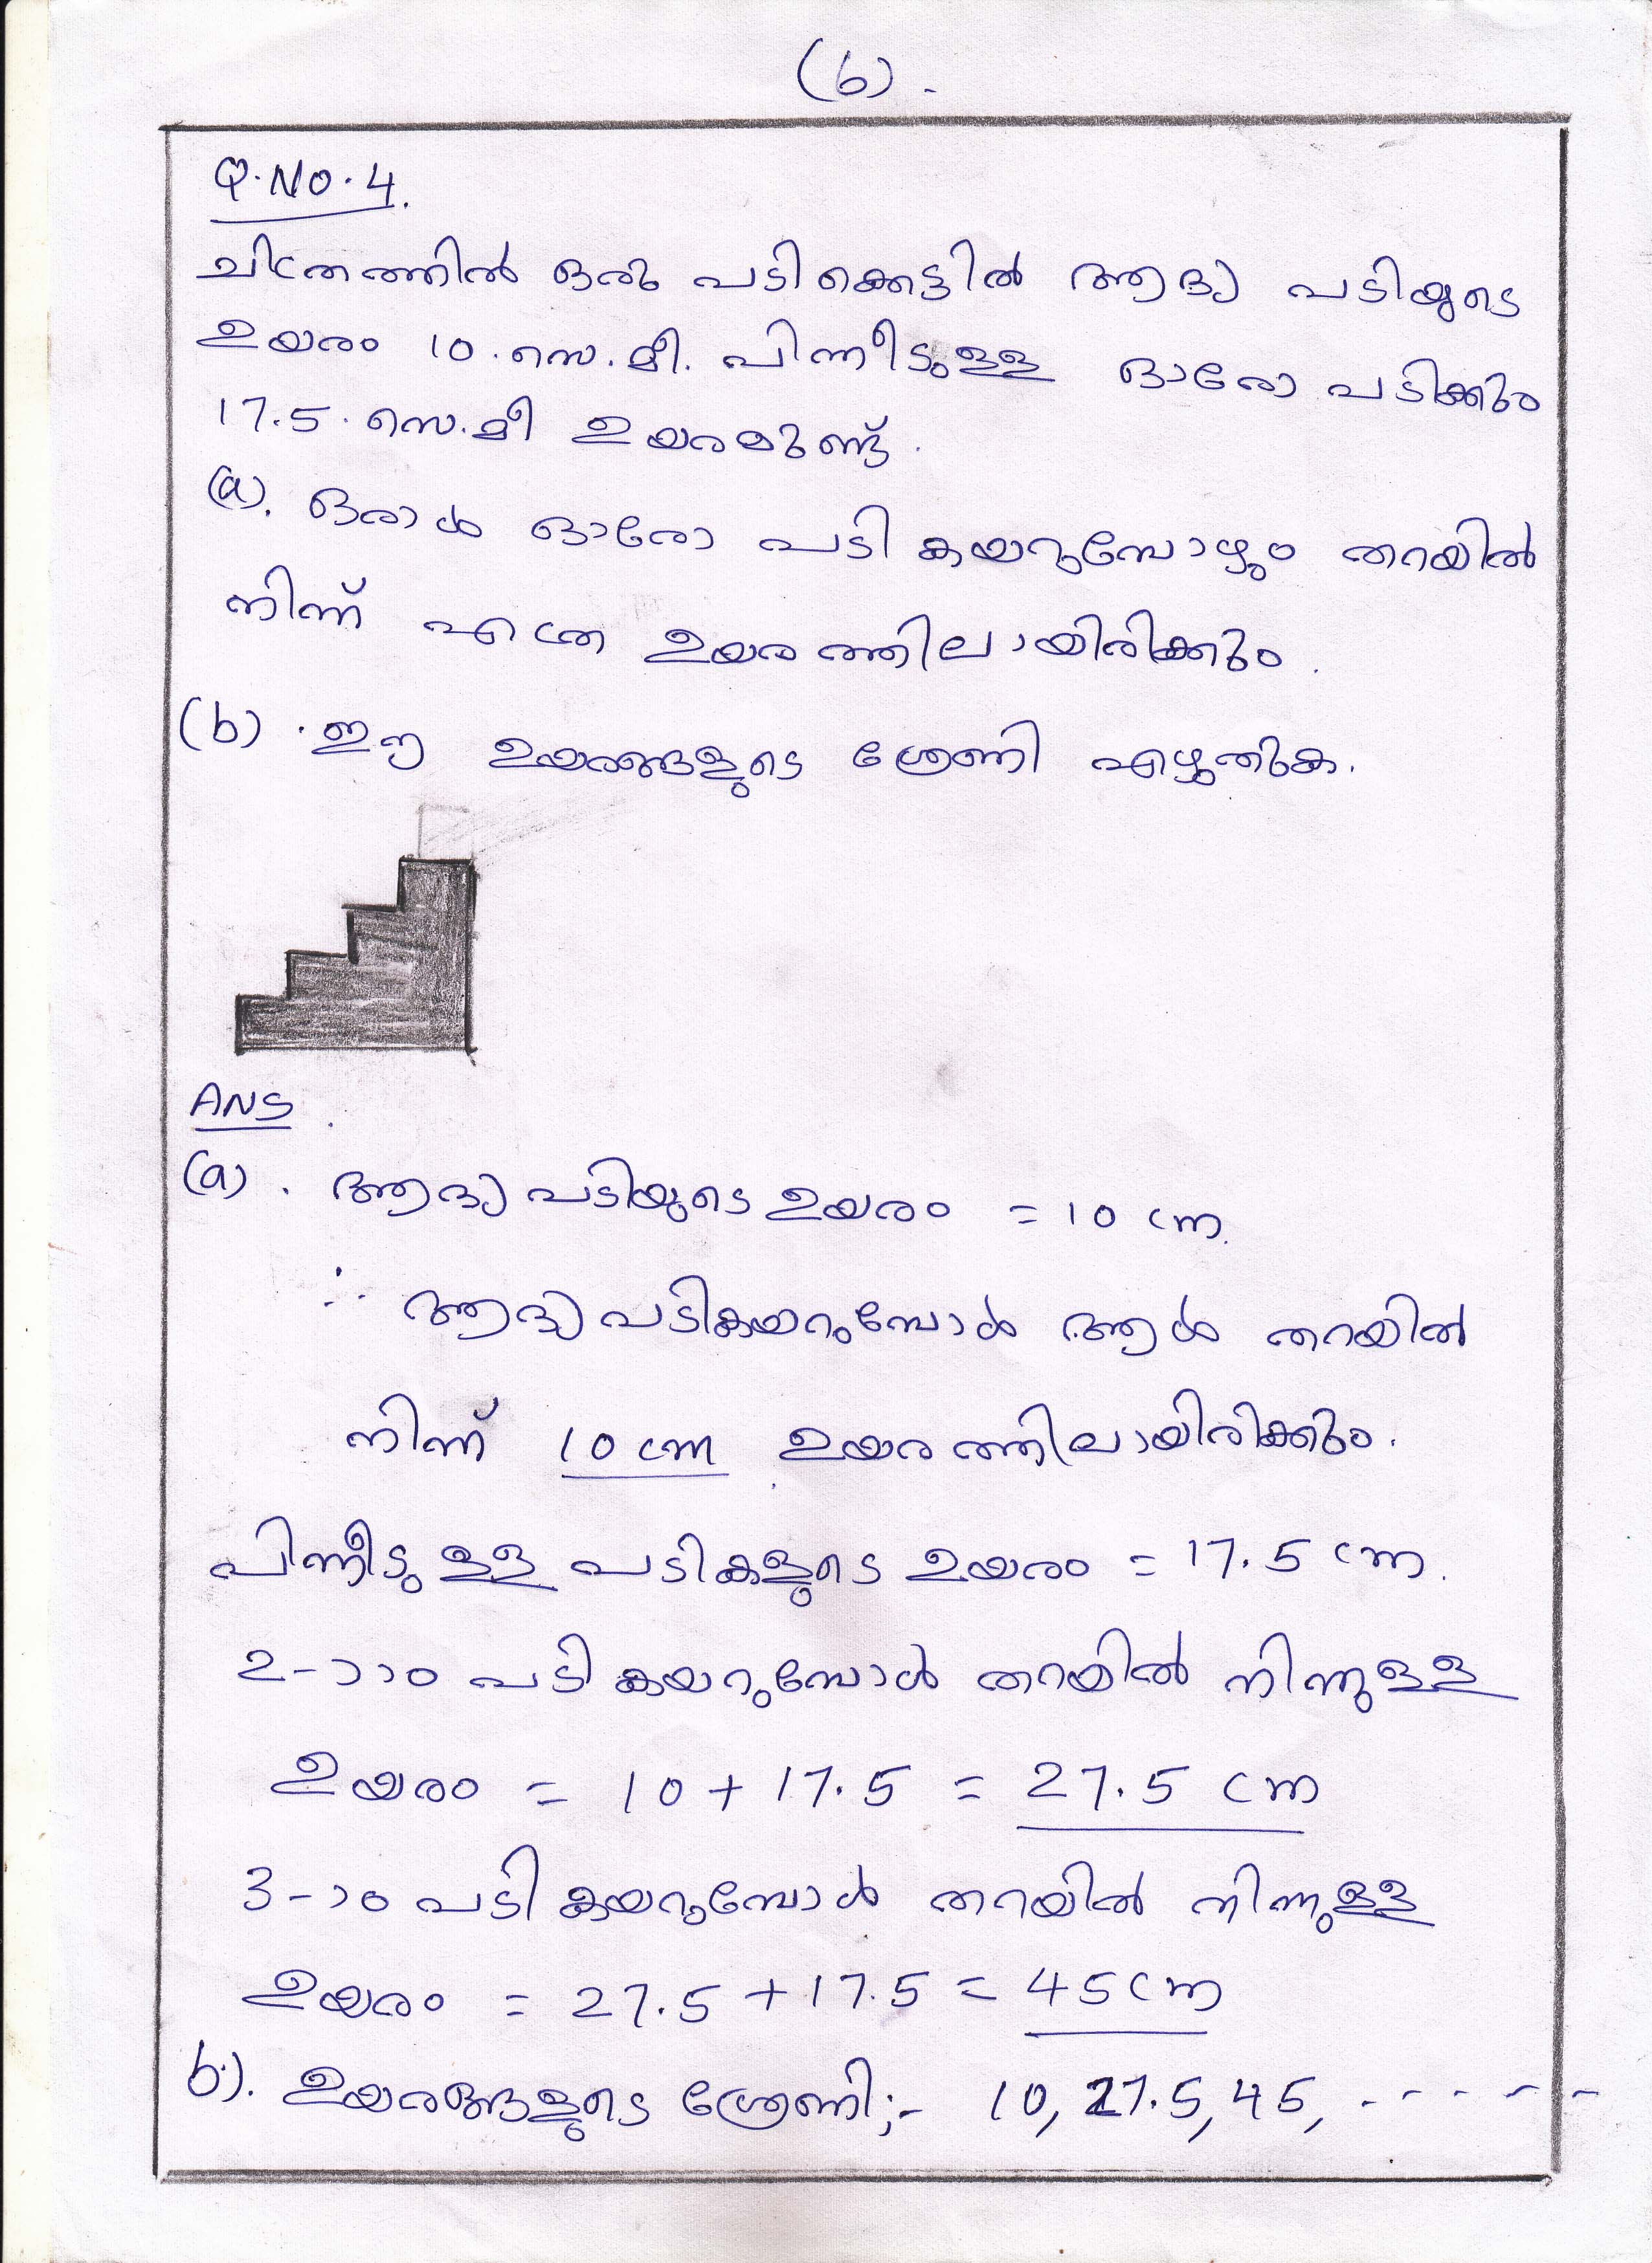 (6).
Q.NO.4.
ചിത്രത്തിൽ ഒരു പടിക്കെട്ടിൽ ആദ്യ പടിയുടെ
ഉയരം 10.സെ.മീ. പിന്നീടുള്ള ഓരോ പടിക്കും
17.5.സെ.മീ ഉയരമുണ്ട്.
(a). ഒരാൾ ഓരോ പടി കയറുമ്പോഴും തറയിൽ
നിന്ന് എത്ര ഉയരത്തിലായിരിക്കും.
(b). ഈ ഉയരങ്ങളുടെ ശ്രേണി എഴുതുക.
ANS.
(a). ആദ്യ പടിയുടെ ഉയരം = 10 cm.
∴ ആദ്യ പടികയറുമ്പോൾ ആൾ തറയിൽ
നിന്ന് 10 cm ഉയരത്തിലായിരിക്കും.
പിന്നീടുള്ള പടികളുടെ ഉയരം = 17.5 cm.
2-ാാം പടി കയറുമ്പോൾ തറയിൽ നിന്നുള്ള
ഉയരം = 10 + 17.5 = 27.5 cm
3-ാം പടി കയറുമ്പോൾ തറയിൽ നിന്നുള്ള
ഉയരം = 27.5 + 17.5 = 45 cm
b). ഉയരങ്ങളുടെ ശ്രേണി;- 10, 27.5, 45, - - - - -